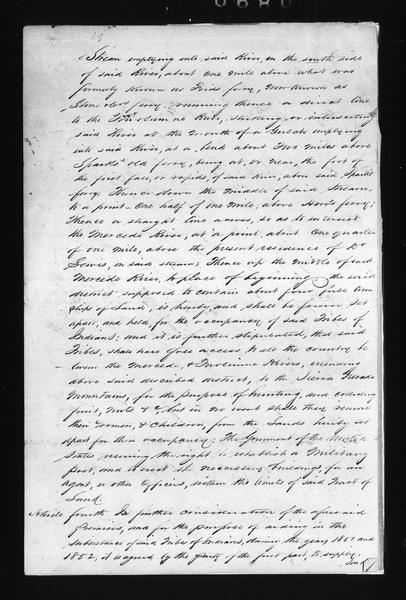 Stream emptying into said River, on the south side
of said River, about one mile above what was
formerly known as Fords ferry, now known as
ferry: running thence a direct line
to the River, striking or intersecting
said River at the mouth of a Gulch emptying
into said River, at a bend about Two miles above
Sparks' old ferry, being at, or near, the foot of
the first fall, or rapids, of said River, above said Sparks
ferry. Thence down the middle of said Stream,
to a point One half of one mile, above Harts ferry;
Thence a straight line across, so as to intersect
the Mercede River, at a point, about One quarter
of one mile, above the present residence of Dr
Lewis, on said stream; Thence up the middle of said
Mercede River, to place of beginning the said
district supposed to contain about four full town
ships of Land, is hereby and shall be forever Set
apart, and held, for the occupancy of said Tribes of
Indians; and it is further stipulated, that said
Tribes, shall have free access to all the country be
tween the Mercede, & Rivers, extending
above said described district, to the Sierra Nevada
Mountains, for the purpose of hunting, and collecting
fruit, Nuts & &c but in no event shall they remove
their Women, & Children, from the Lands hereby set
apart for their occupancy: The Government of the United
States reserving the right to establish a Military
post, and to erect the necessary Buildings, for an
agent, or other Officers, within the limits of said Tract of
Land.
Article fourth In further consideration of the aforesaid
Premises, and for the purpose of aiding in the
subsistance of said Tribes of Indians, during the years 1851 and
1852, it is agreed by the party of the first part, to supply